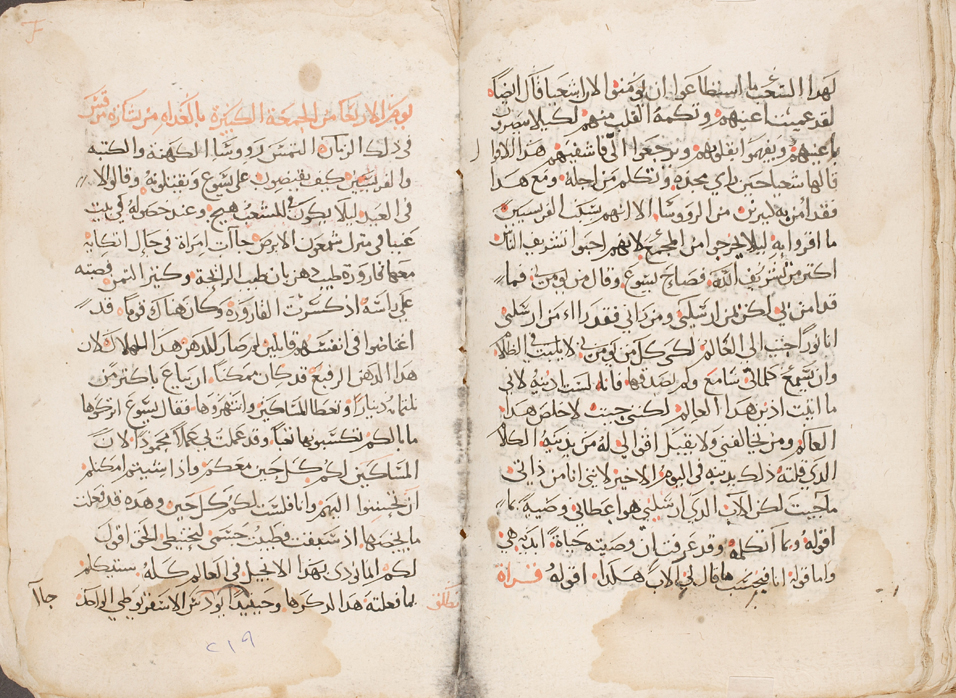 لهذا الشعب ما استطاعوا ان يومنوا لان اشعيا قال ايضاً
لقد عميت اعينهم وتكمه القلب منهم لكيلا يبصرون
باعينهم ويفهموا بقلوبهم ويرجعوا اليّ فاشفيهم هذا الاقوال
قالها شعيا حين راي مجده وتكلم من اجله ومع هذا
فقد امن به كثيرين من الرووسا الا انهم بسبب الفريسيين
ما اقروا به ليلا يخرجوا من المجمع لانهم احبوا تشريف الناس
اكثر من تشريف الله فصاح يسوع وقال من يومن بي فما
قد امن بي لكن بمن ارسلني ومن راني فقد راا من ارسلني
انا نوراً جيت الي العالم لكي كل من يومن بي لا يلبث في الظلام
وان يسمع كلماتي سامع ولم يصدقها فانه لست ادينه لاني
ما اتيت ادين هذا العالم لكني جيت لاخلص هذا
العالم ومن يخالفني ولا يقبل اقوالي له من يدينه الكلام
الذي قلته ذلك يدينه في اليوم الاخير لانني انا من ذاتي
ما جيت لكن الاب الذي ارسلني هو اعطاني وصية بما
اقوله وبما اتكلمه وقد عرفت ان وصيته حياة ابديه هي
واما قوله انا فبحسب ما قال لي الاب هكذا اقوله قراة
يوم الاربعا من الجمعة الكبيرة بالغداه من بشارة مرقس
في ذلك الزمان التمس رووسا الكهنة والكتبه
والفريسيين كيف يقبضون علي يسوع ويقتلونه وقالوا لا
في العيد ليلا يكون في الشعب هيج وعند حصوله في بيت
عنيا في منزل شمعون الابرص جاات امراة في حال اتكايه
معها قارورة طيب دهن بان طيب الرايحة وكثير الثمن فصبته
علي راسه اذ كسرت القارورة وكان هناك قوماً قد
اغتاضوا في انفسهم قايلين لم صار للدهن هذا الهلاك لان
هذا الدهن الرفيع قد كان ممكناً ان يباع باكثر من
ثلثمايه ديناراً وتعطا للمساكين وانتهروها فقال يسوع اتركوها
ما بالكم تكسبونها تعباً وقد عملت بي عملاً محموداً لان
المساكين لكم كل حين معكم واذا شيتم امكنكم
ان تحسنوا اليهم وانا فلست لكم كل حين وهذه قد فعلت
ما يخصها اذ سبقت فطيبت جسمي لتحنيطي الحق اقول
لكم اذا نودي بهذا الانجيل في العالم كله سيتكلم
بما فعلته هذه لذكرها وحينيذاً يودس الاسخريوطي الواحد
جاا
٢١٩